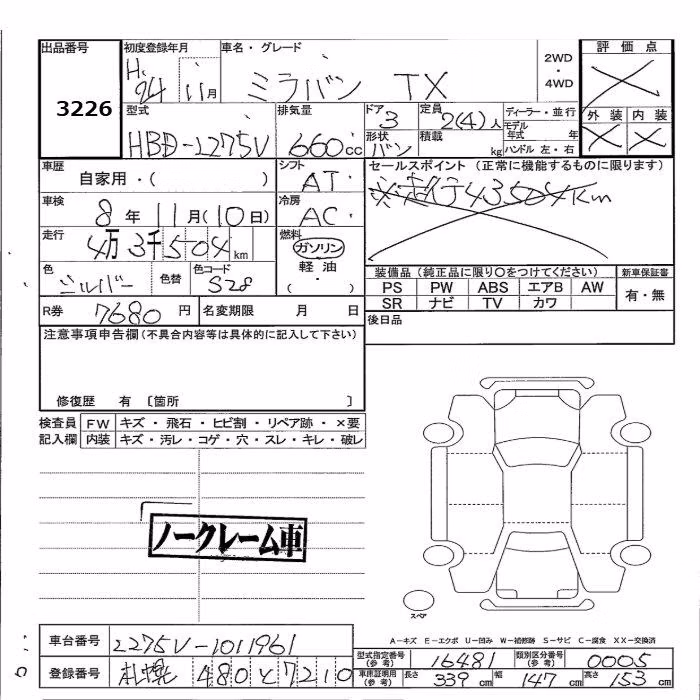 出品番号 初度登録年月 車名・グレード 評価点
3226 H. 24 11月 ミラバン TX 2WD・4WD ×
型式 排気量 ドア 3 定員 2(4)人 ディーラー・並行 外装 内装
HBD-L275V 660cc 形状 バン 積載 kg モデル年式 年 ハンドル 左・右 × ×
車歴 自家用・( ) シフト AT セールスポイント (正常に機能するものに限ります)
車検 8年 11月(10日) 冷房 AC ※走行43504Km
走行 4万3千504km 燃料 ガソリン 軽油 ( ・ )
色 シルバー 色替 色コード S28
装備品(純正品に限り○をつけてください) 新車保証書
PS PW ABS エアB AW 有・無
SR ナビ TV カワ
R券 7680円 名変期限 月 日 後日品
注意事項申告欄(不具合内容等は具体的に記入して下さい)
修復歴 有 〔箇所 〕
検査員 FW キズ・飛石・ヒビ割・リペア跡・×要
記入欄 内装 キズ・汚レ・コゲ・穴・スレ・キレ・破レ
ノークレーム車
スペア
A-キズ E-エクボ U-凹み W-補修跡 S-サビ C-腐食 XX-交換済
車台番号 L275V-1011961
型式指定番号(参考) 16481 類別区分番号(参考) 0005
登録番号 札幌 480 と 7210
車庫証明用(参考) 長さ 339cm 幅 147cm 高さ 153cm